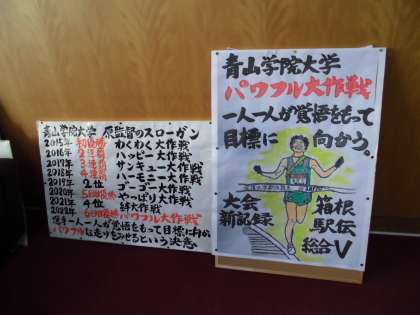 青山学院大学 原監督のスローガン
2015年 初優勝 わくわく大作戦
2016年 2連覇 ハッピー大作戦
2017年 3連覇 サンキュー大作戦
2018年 4連覇 ハーモニー大作戦
2019年 2位 ゴーゴー大作戦
2020年 5回目優勝 やっぱり大作戦
2021年 4位 絆大作戦
2022年 6回目優勝 パワフル大作戦
一人一人が覚悟をもって目標に向め
パワフルに走りをみせるという決意
青山学院大学
パワフル大作戦
一人一人が覚悟をもって
目標に 向かう。
大会
新記録
箱根
駅伝
総合V